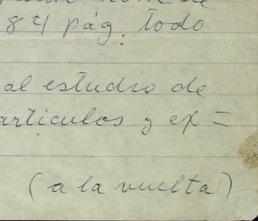 84 pág. todo
al estudio de
artículos y ex=
(a la vuelta)